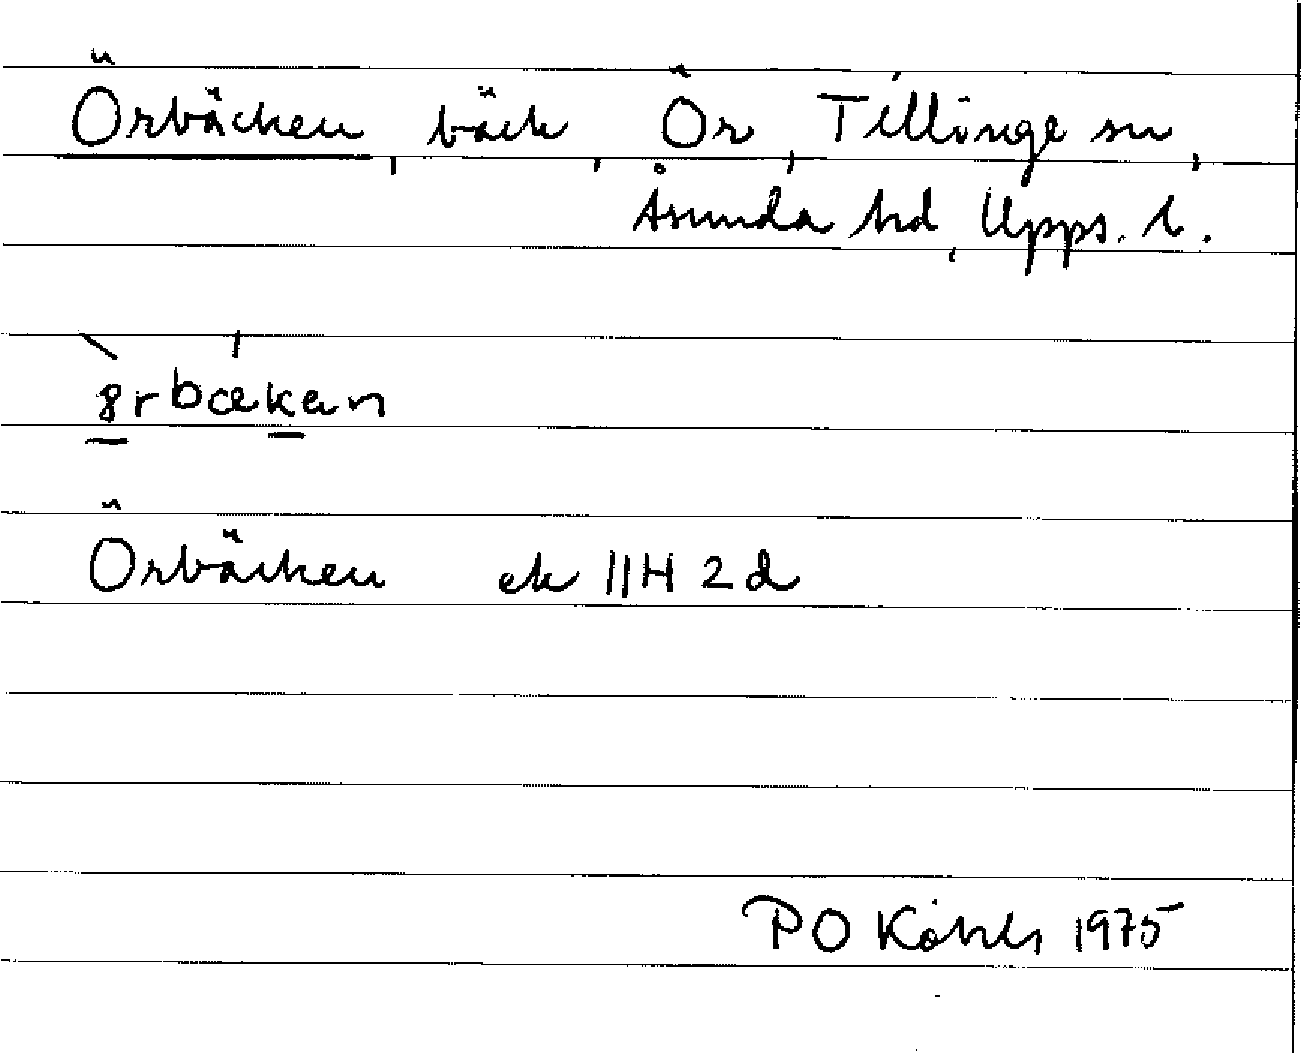 Örbäcken, bäck, Ör, Tillinge sn,
Åsunda hd, Upps. l.
Örbäcken ek 11H 2d
PO 1975